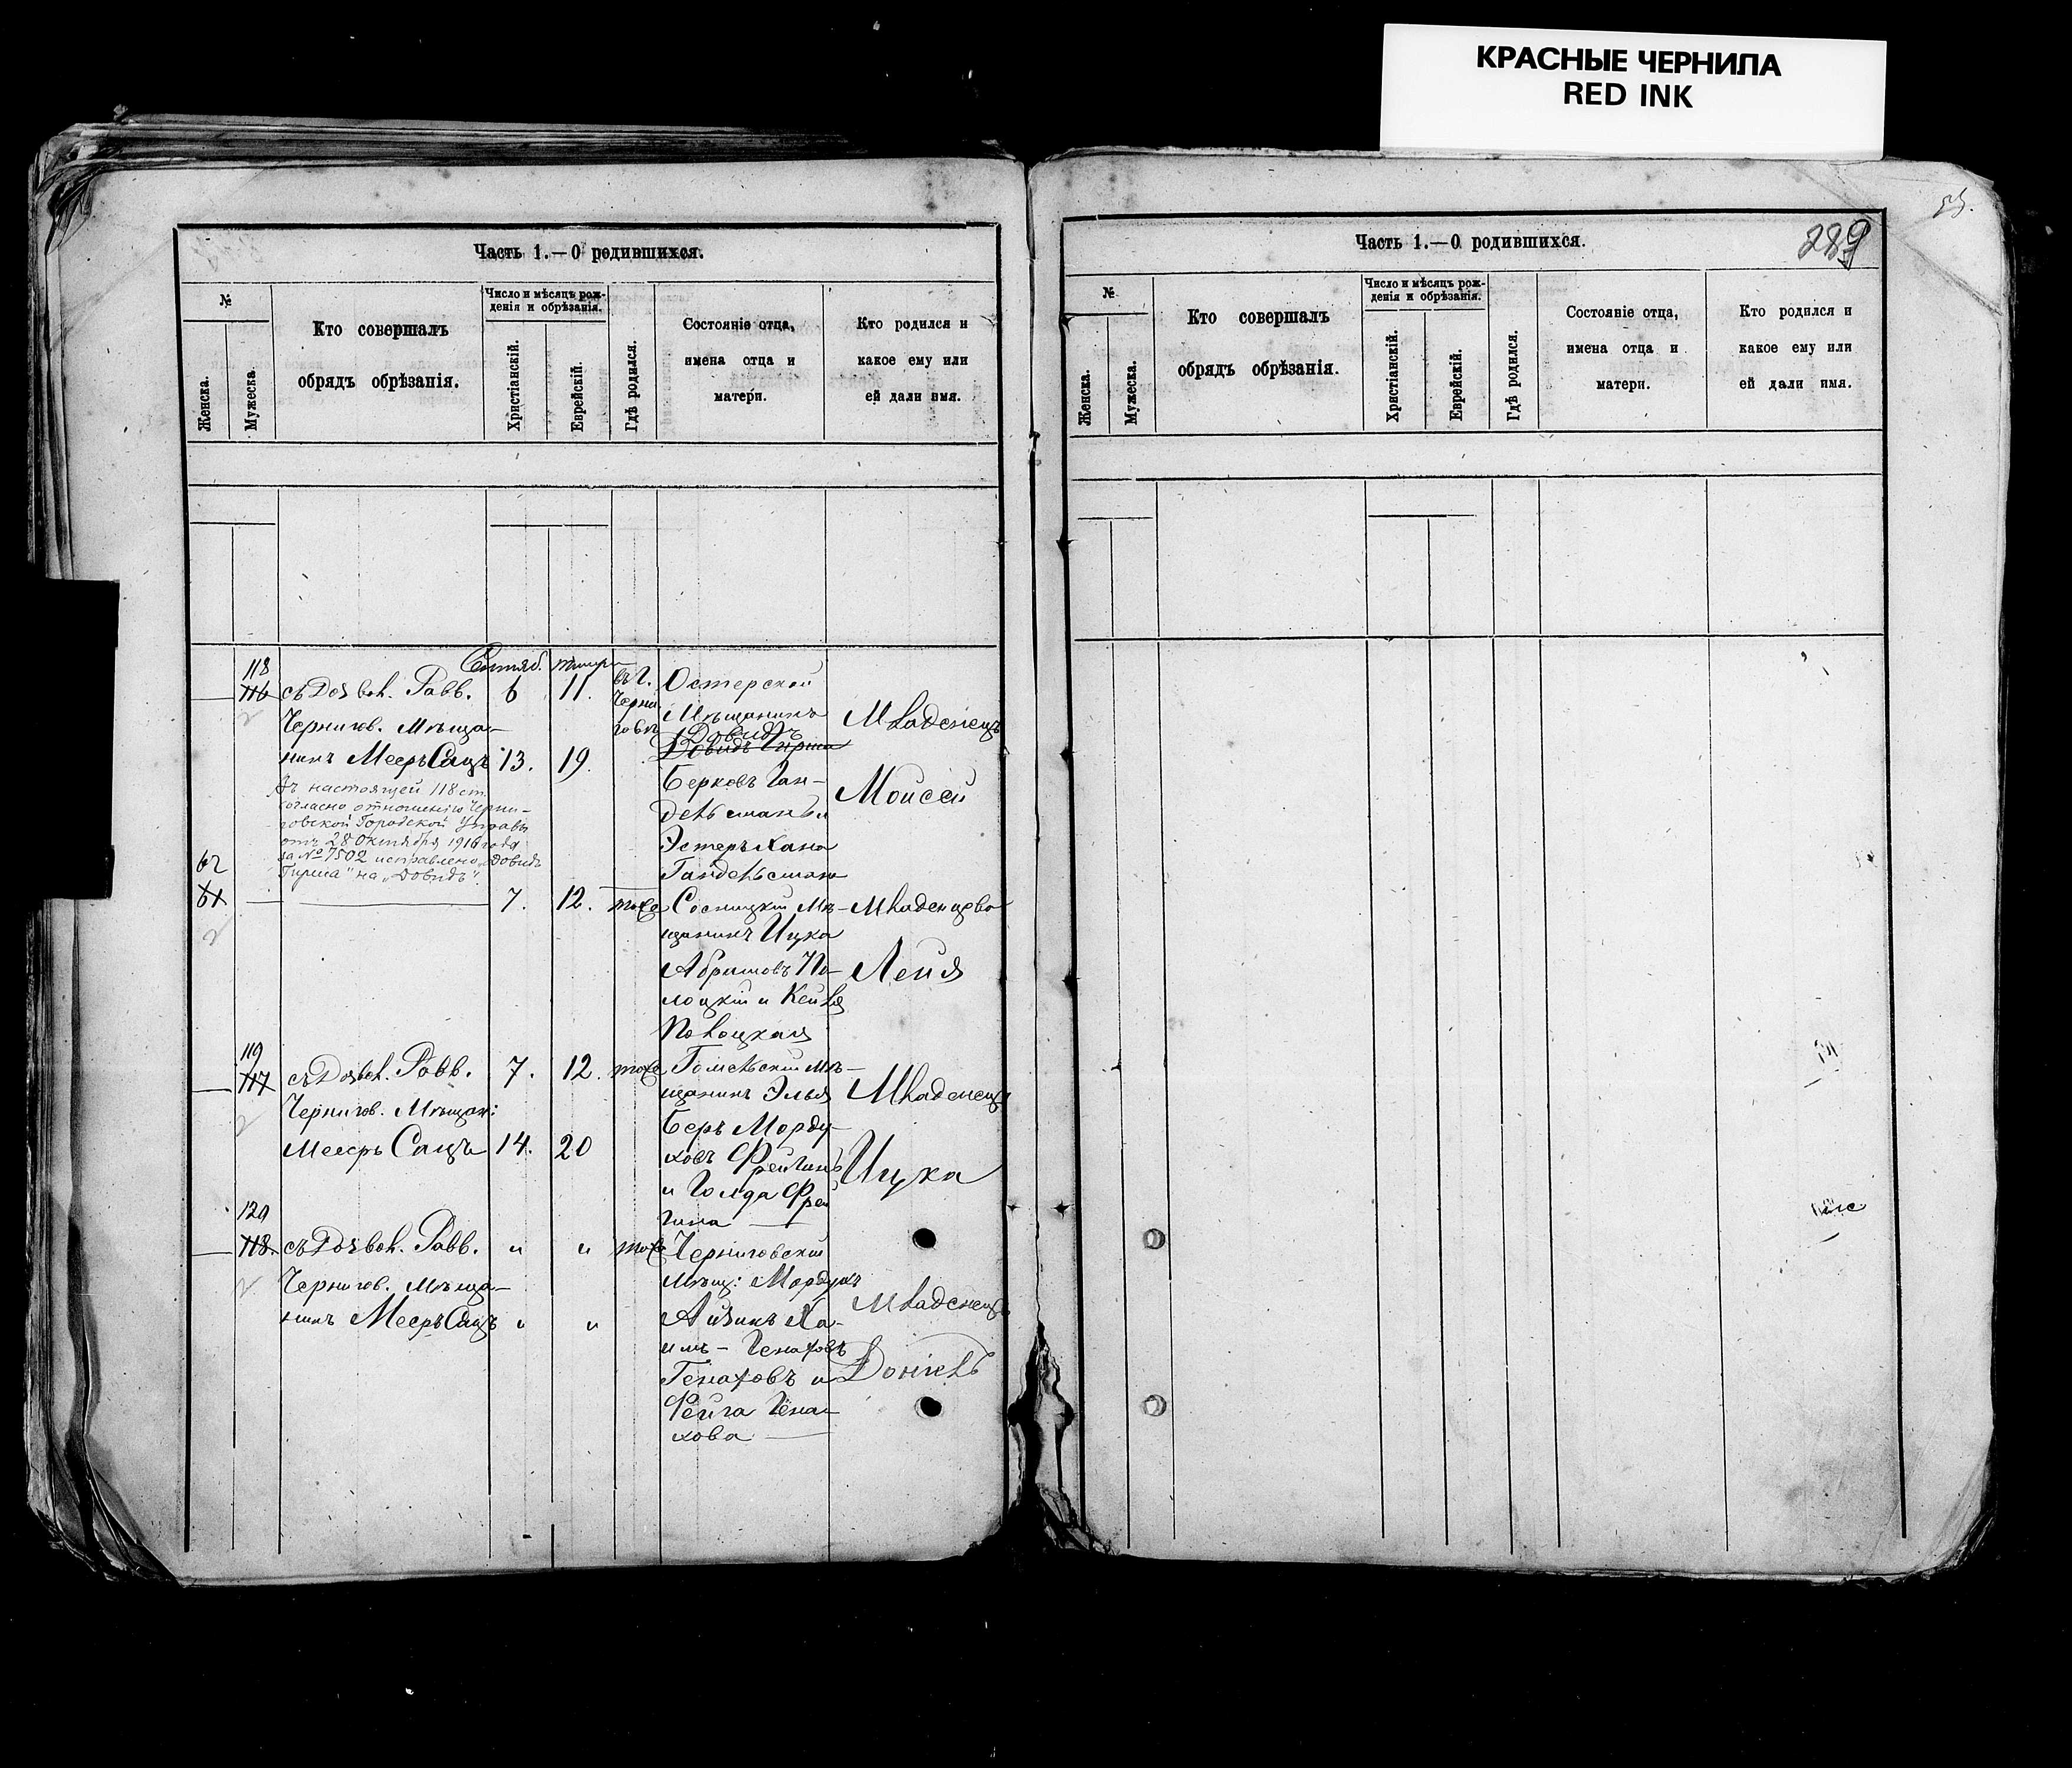 КРАСНЫЕ ЧЕРНИЛА
RED INK
Часть 1.—О родившихся.
№
Женска.
Мужеска.
Кто совершалъ
обрядъ обрѣзанія.
Число и мѣсяцъ рож-
денія и обрѣзанія.
Христіанскій.
Еврейскій.
Гдѣ родился.
Состояніе отца,
имена отца и
матери.
Кто родился и
какое ему или
ей дали имя.
Сентяб.
118
116
съ Дозвол. Равв.
Чернигов. Мѣща-
нинъ Мееръ Сацъ
Въ настоящей 118 ст.
согласно отношенію Черни-
говской Городской Управы
отъ 28 Октября 1916 года
за № 7502 исправлено „Довидъ
Гирша" на „Довидъ".
6
11.
13.
19.
въ г.
Черни
говѣ
Остерской
Мѣщанинъ
Довидъ
Довидъ Гирша
Берковъ Ган-
дельсманъ и
Эстеръ Хана
Гандельсманъ
Младенецъ
Моисей
62
61
7.
12.
тоже
Сосницкій Мѣ-
щанинъ Ицка
Абрамовъ По-
лоцкій и Кейля
Полоцкая
Младенцево
Лейя
119
117
съ Дозвол. Равв.
Чернигов. Мѣщан:
Мееръ Сацъ
7.
12.
14.
20
тоже
Гомельскій мѣ-
щанинъ Элья
Беръ Морду-
ховъ Фрейгинъ
и Голда Фрей
гина
Младенецъ
Ицка
120
118.
съ Дозвол. Равв.
Чернигов. Мѣща-
нинъ Мееръ Сацъ
"
"
"
"
тоже
Черниговскій
Мѣщ: Мордухъ
Айзикъ Ха-
имъ-Генаховъ
Генаховъ и
Фейга Гена-
хова
Младенецъ
Доніелъ
Часть 1.—О родившихся.
289
№
Женска.
Мужеска.
Кто совершалъ
обрядъ обрѣзанія.
Число и мѣсяцъ рож-
денія и обрѣзанія.
Христіанскій.
Еврейскій.
Гдѣ родился.
Состояніе отца,
имена отца и
матери.
Кто родился и
какое ему или
ей дали имя.